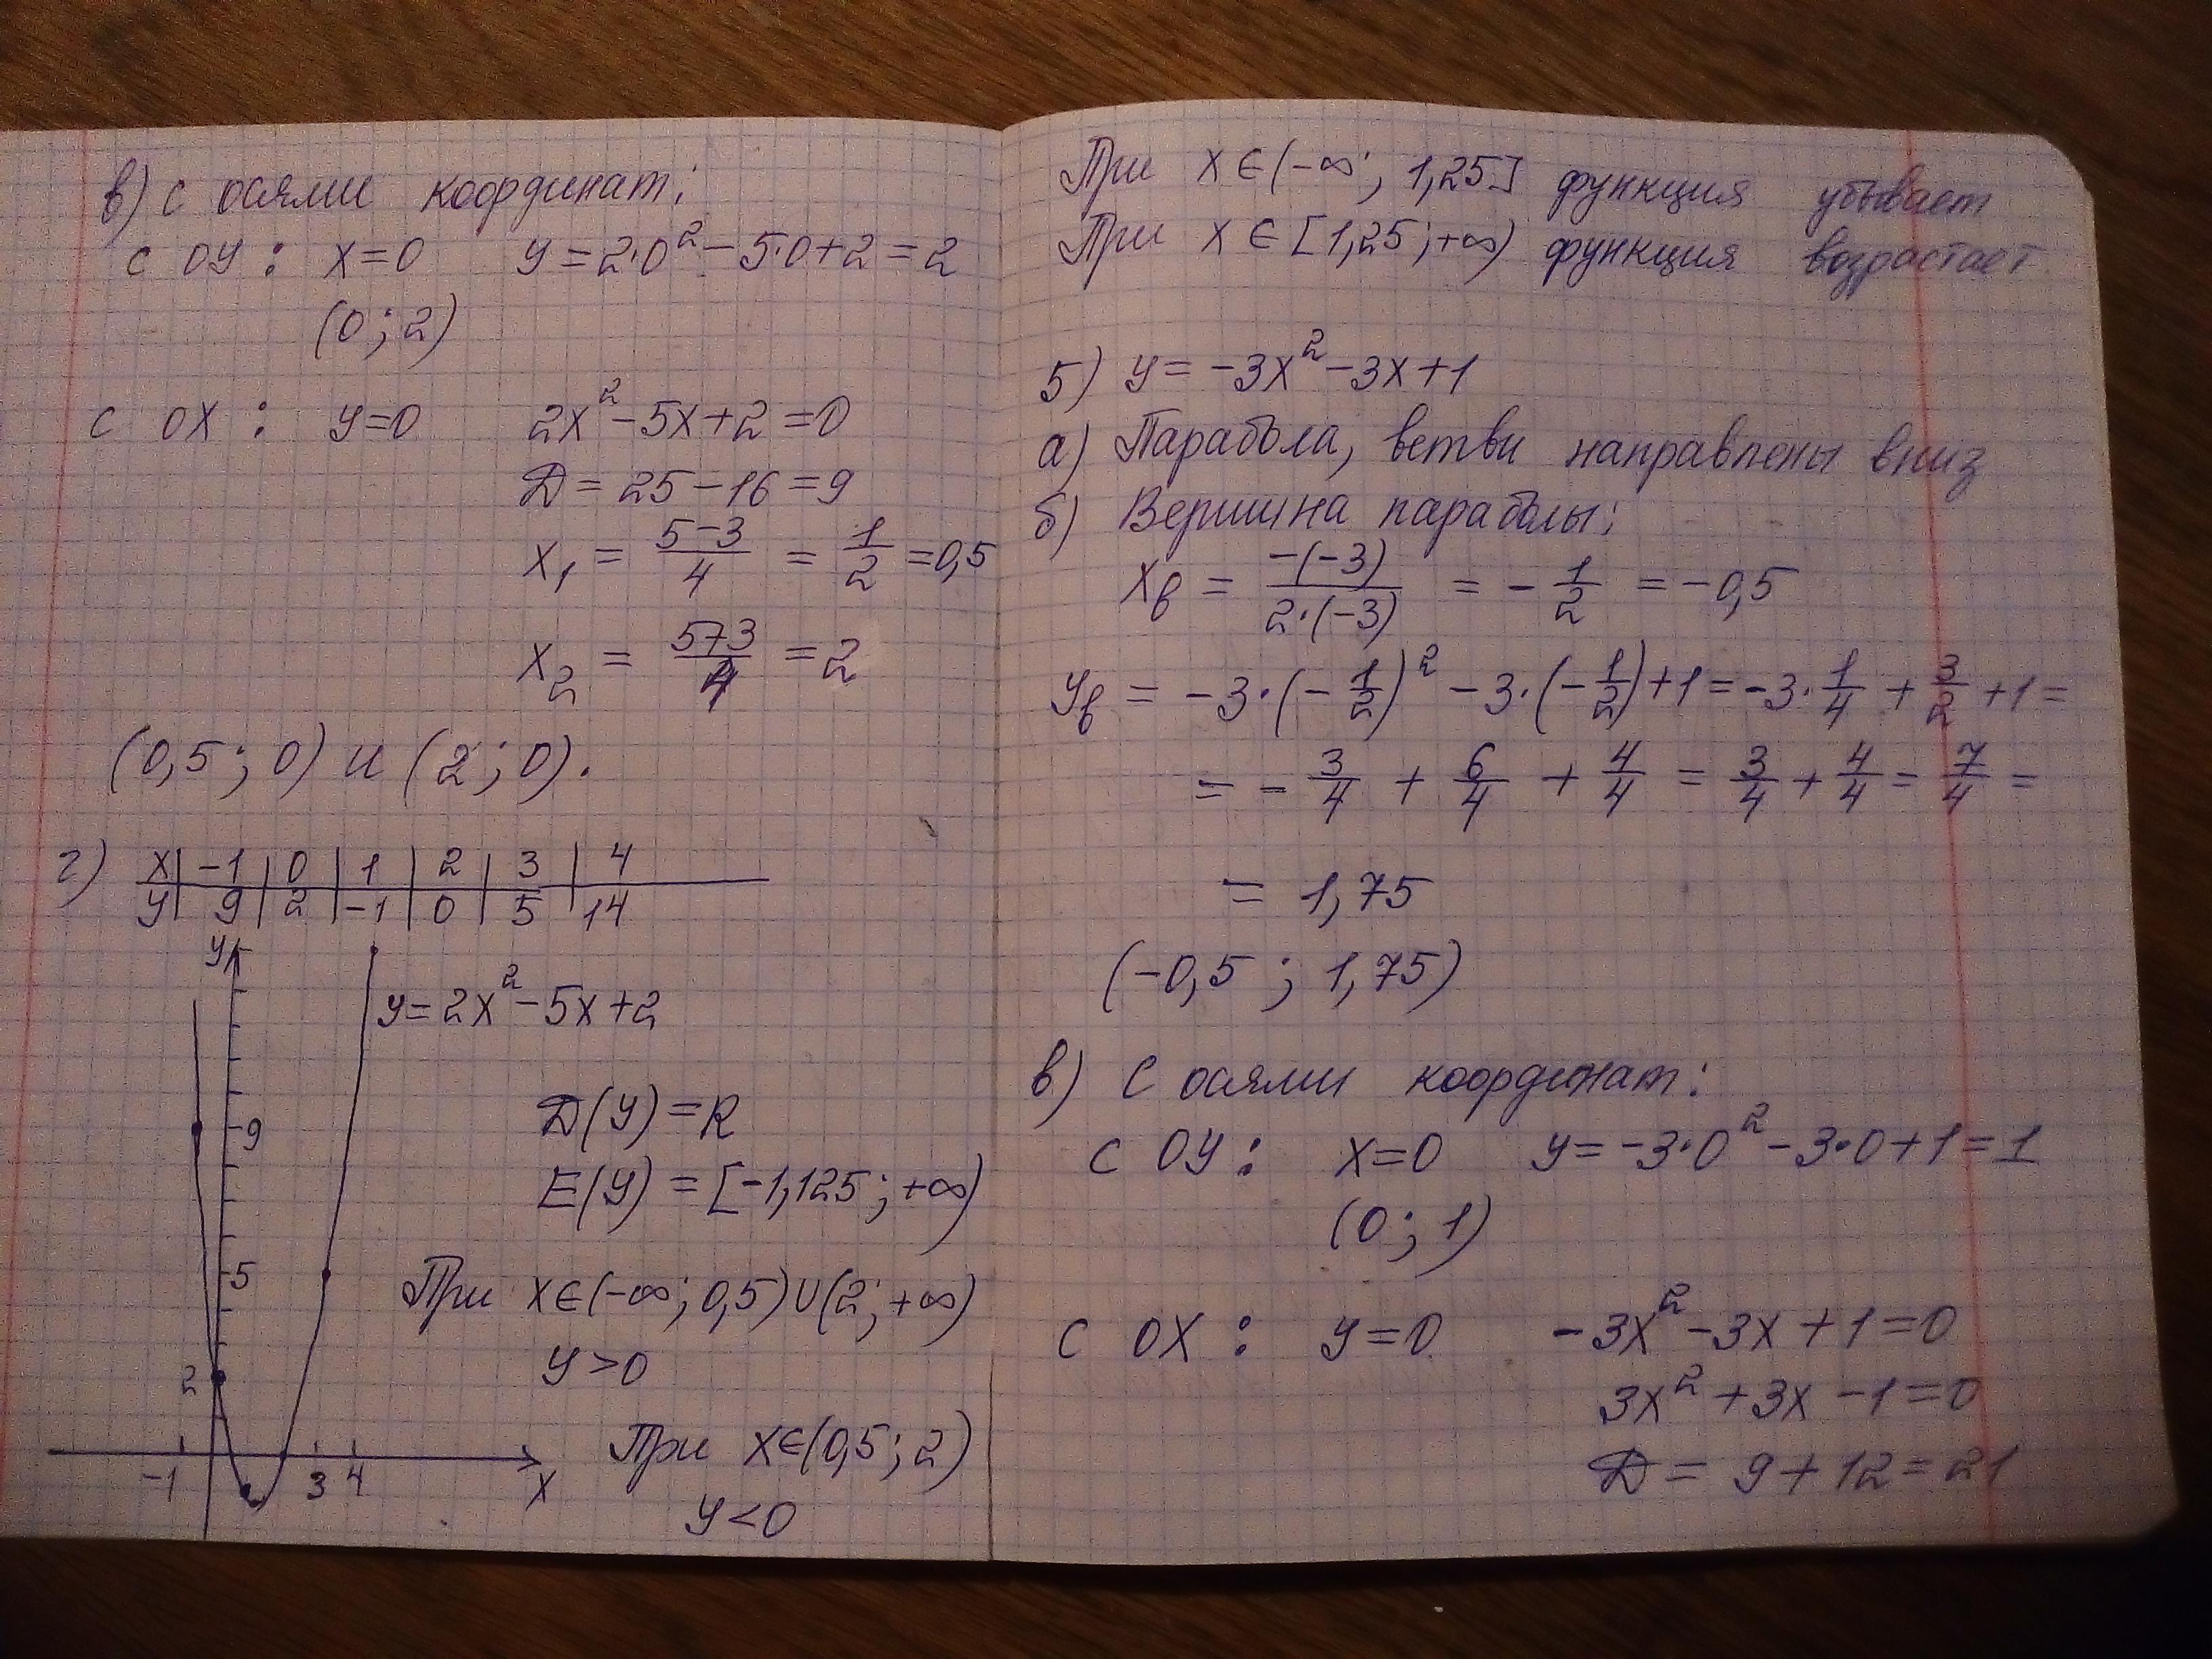 в) С осями координат:
с OY: x=0 y=2·0²-5·0+2=2
(0; 2)
с OX: y=0 2x²-5x+2=0
D=25-16=9
x₁ = (5-3)/4 = 1/2 =0,5
x₂ = (5+3)/4 =2
(0,5; 0) и (2; 0).
г) x | -1 | 0 | 1 | 2 | 3 | 4
y | 9 | 2 | -1 | 0 | 5 | 14
y
y=2x²-5x+2
9
D(y)=R
E(y)=[-1,125; +∞)
5
При x∈(-∞; 0,5)∪(2; +∞)
y>0
2
При x∈(0,5; 2)
-1 3 4 x
y<0
При x∈(-∞; 1,25] функция убывает
При x∈[1,25; +∞) функция возрастает
5) y=-3x²-3x+1
а) Парабола, ветви направлены вниз
б) Вершина параболы:
xв = -(-3)/2·(-3) = -1/2 = -0,5
yв = -3·(-1/2)² -3·(-1/2)+1=-3·1/4 + 3/2 +1=
= -3/4 + 6/4 + 4/4 = 3/4 + 4/4 = 7/4 =
= 1,75
(-0,5; 1,75)
в) С осями координат:
с OY: x=0 y=-3·0²-3·0+1=1
(0; 1)
с OX: y=0 -3x²-3x+1=0
3x²+3x-1=0
D = 9+12=21